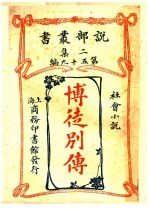 說部叢書
二集
第五十九編
社會小說
博徒別傳
上海商務印書館發行